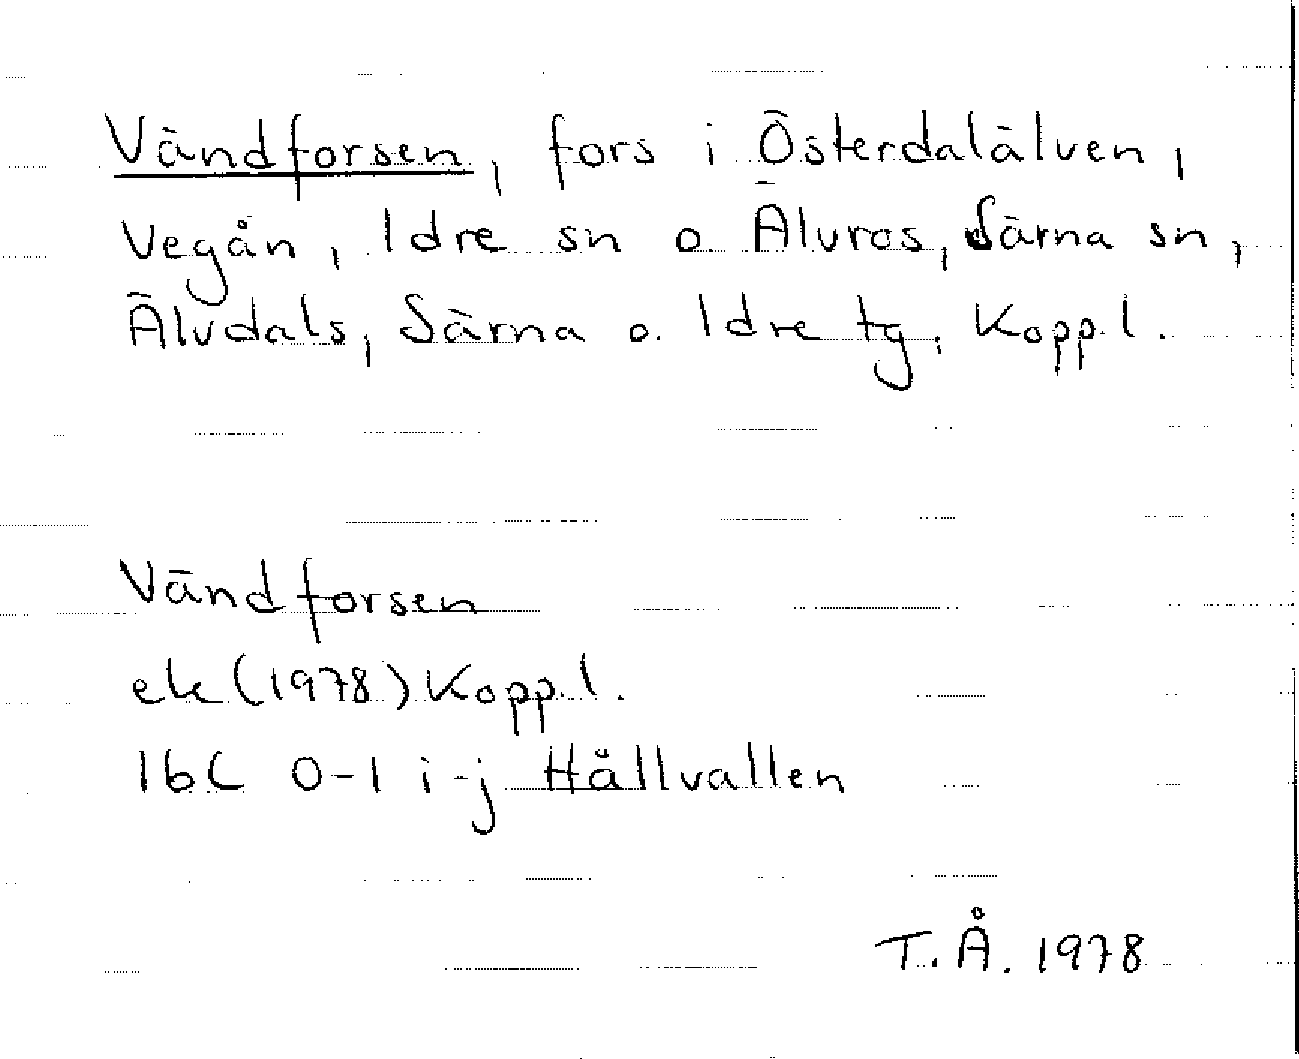 Vändforsen, fors i Österdalälven,
Vegån, Idre sn o Älvros, Särna sn,
Älvdals, Särna o. Idre tg, Kopp.l.
Vändforsen
ek (1978) Kopp.l.
16C 0-1 i-j Hållvallen
T.Å. 1978